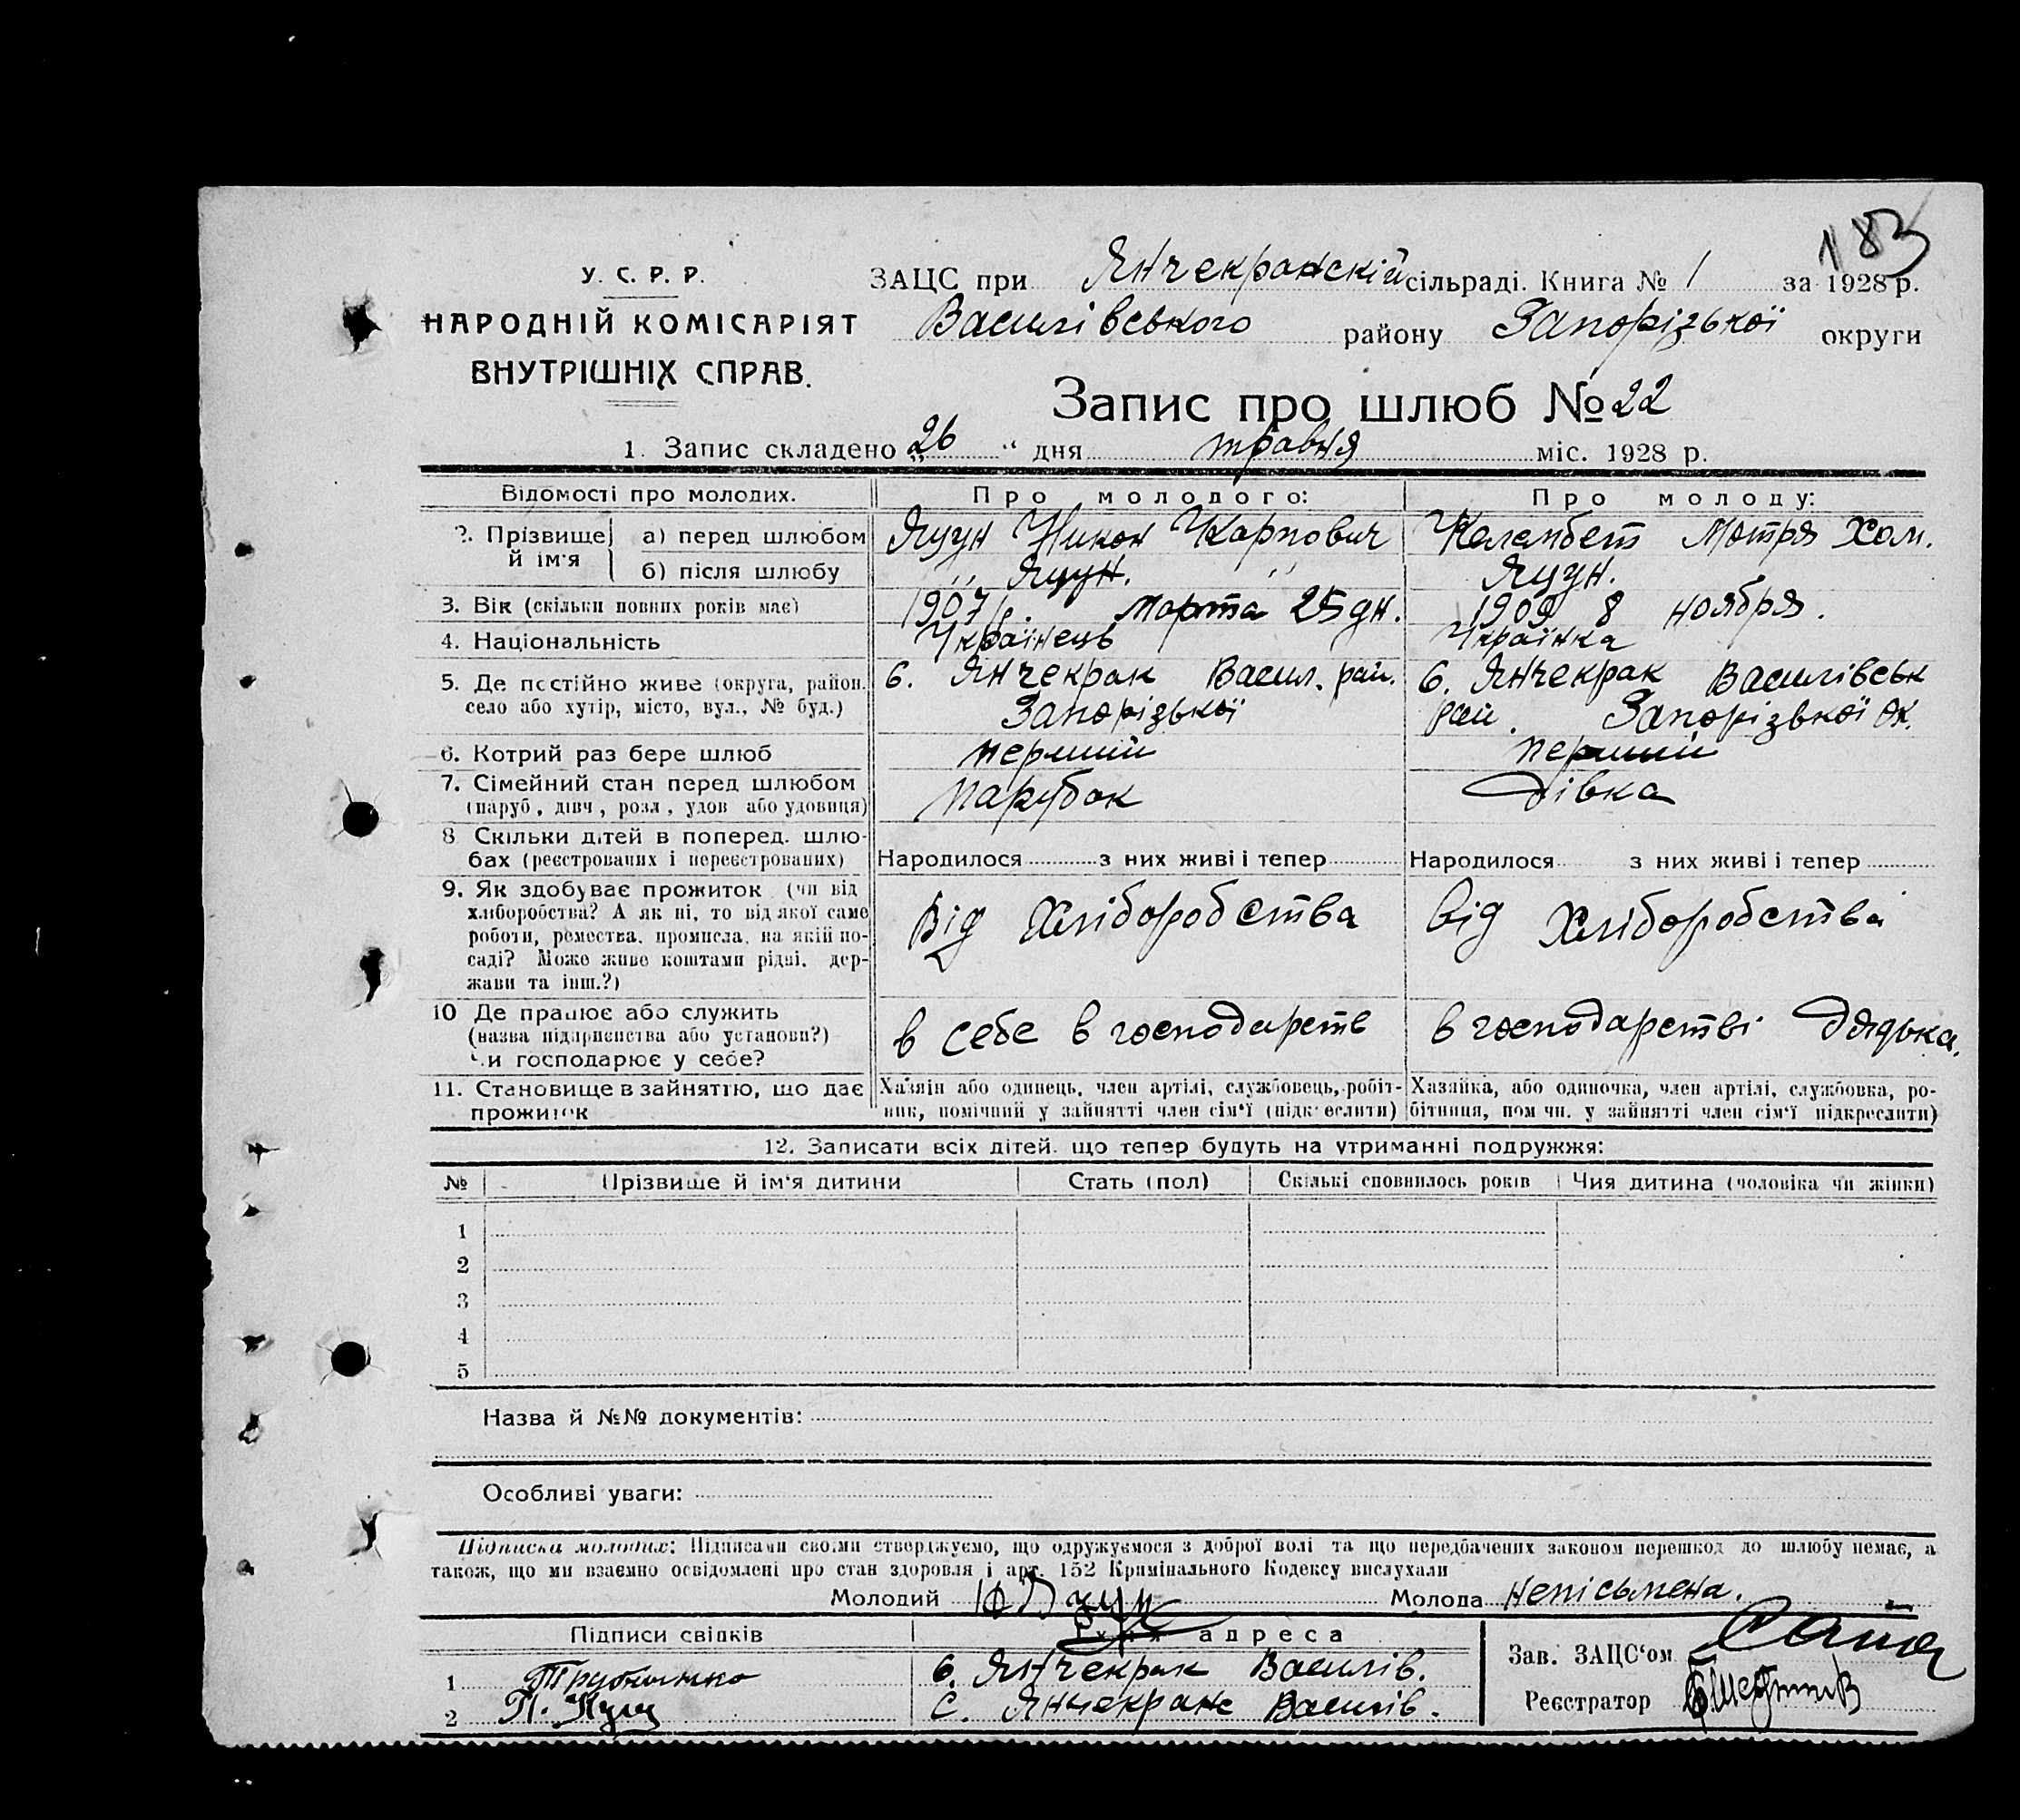 183
У. С. Р. Р.
НАРОДНІЙ КОМІСАРІЯТ
ВНУТРІШНІХ СПРАВ.
ЗАЦС при Янчекракскій сільраді. Книга № 1 за 1928 р.
Василівського району Запорізької округи
Запис про шлюб № 22
1. Запис складено „26“ дня травня міс. 1928 р.
Відомості про молодих. Про молодого: Про молоду:
2. Прізвище й ім'я
а) перед шлюбом Яцун Никон Карпович Келембет Мотря Хом.
б) після шлюбу „ Яцун. „ Яцун.
3. Вік (скільки повних років має) 1907 р. марта 25 дн. 1909 8 ноября.
4. Національність Українець Українка
5. Де постійно живе (округа, район. с. Янчекрак Васил. рай. с. Янчекрак Василівськ
село або хутір, місто, вул., № буд.) Запорізької рай. Запорізької ок.
6. Котрий раз бере шлюб перший перший
7. Сімейний стан перед шлюбом Парубок дівка
(паруб, дівч, розл, удов або удовиця)
8 Скільки дітей в поперед. шлю-
бах (реєстрованих і нереєстрованих) Народилося з них живі і тепер Народилося з них живі і тепер
9. Як здобуває прожиток (чи від
хліборобства? А як ні, то від якої саме Від Хліборобства Від Хліборобства
роботи, ремества, промисла, на якій по-
саді? Може живе коштами рідні, дер-
жави та інш.?)
10 Де працює або служить
(назва підприємства або установи?) в себе в господарств в господарстві дядька.
Чи господарює у себе?
11. Становище в зайняттю, що дає Хазяїн або одинець, член артілі, службовець, робіт- Хазяйка, або одиночка, член артілі, службовка, ро-
прожиток ник, помічний у зайнятті член сім'ї (підкреслити) бітниця, пом чн. у зайнятті член сім'ї підкреслити)
12. Записати всіх дітей, що тепер будуть на утриманні подружжя:
№ Прізвище й ім'я дитини Стать (пол) Скількі сповнилось років Чия дитина (чоловіка чи жінки)
1
2
3
4
5
Назва й №№ документів:
Особливі уваги:
Підписка молодих: Підписами своїми стверджуємо, що одружуємося з доброї волі та що передбачених законом перешкод до шлюбу немає, а
також, що ми взаємно освідомлені про стан здоровля і арт. 152 Кримінального Кодексу вислухали
Молодий Яцун Молода непісьмена.
Підписи свідків Їхня адреса
Зав. ЗАЦС'ом
1 с. Янчекрак Василів.
Реєстратор
2 с. Янчекрак Василів.